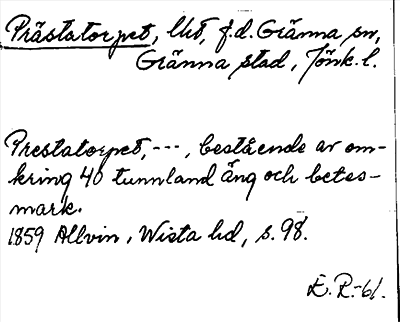 Prästatorpet, lht, f.d. Gränna sn,
Gränna stad, Jönk. l.
Prestatorpet, ---, bestående av om-
kring 40 tunnland äng och betes-
mark.
1859 Allvin, Wista hd, s. 98.
E. R.-61.